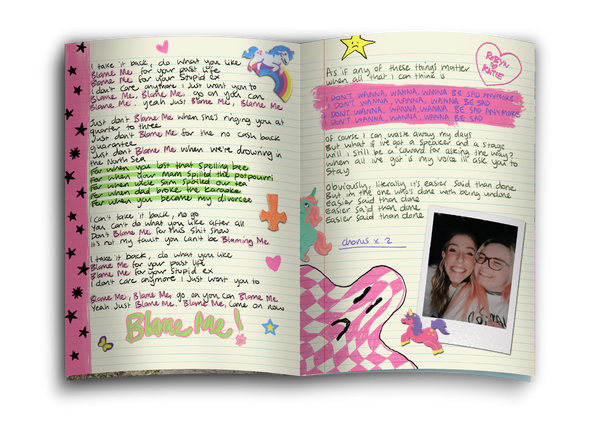 I take it back, do what you like
Blame Me for your past life
Blame Me for your stupid ex
I don't care anymore I just want you to
Blame Me, Blame Me, go on you can
Blame Me, yeah Just Blame Me, Blame Me
Just don't Blame Me when she's ringing you at
quarter to three
Just don't Blame Me for the no cash back
guarantee
Just don't Blame Me when we're drowning in
the North Sea
For when you lost that spelling bee
For when your mam spilled the potpourri
For when uncle Sam spoiled our tea
For when dad broke the karaoke
For when you become my divorcee
I can't take it back, no go
You can't do what you like after all
Don't Blame Me for this shit show
It's not my fault you can't be Blaming Me
I take it back, do what you like
Blame Me for your past life
Blame Me for your stupid ex
I don't care anymore I Just want you to
Blame Me, Blame Me go on you can Blame Me
Yeah Just Blame Me, Blame Me, come on now
Blame Me!
ROBYN
AND
KATIE
As if any of these things matter
When all that I can think is
I DON'T WANNA, WANNA, WANNA BE SAD ANYMORE
I DON'T WANNA, WANNA, WANNA BE SAD
I DON'T WANNA, WANNA, WANNA BE SAD ANYMORE
I DON'T WANNA, WANNA, WANNA BE SAD
Of course I can waste away my days
But what if I've got a speaker and a stage
Will I still be a coward for asking the way?
When all I've got is my voice I'll ask you to
Stay
Obviously, literally it's easier said than done
But I'm the one who's done with being undone
Easier said than done
Easier said than done
Easier said than done
chorus x 2